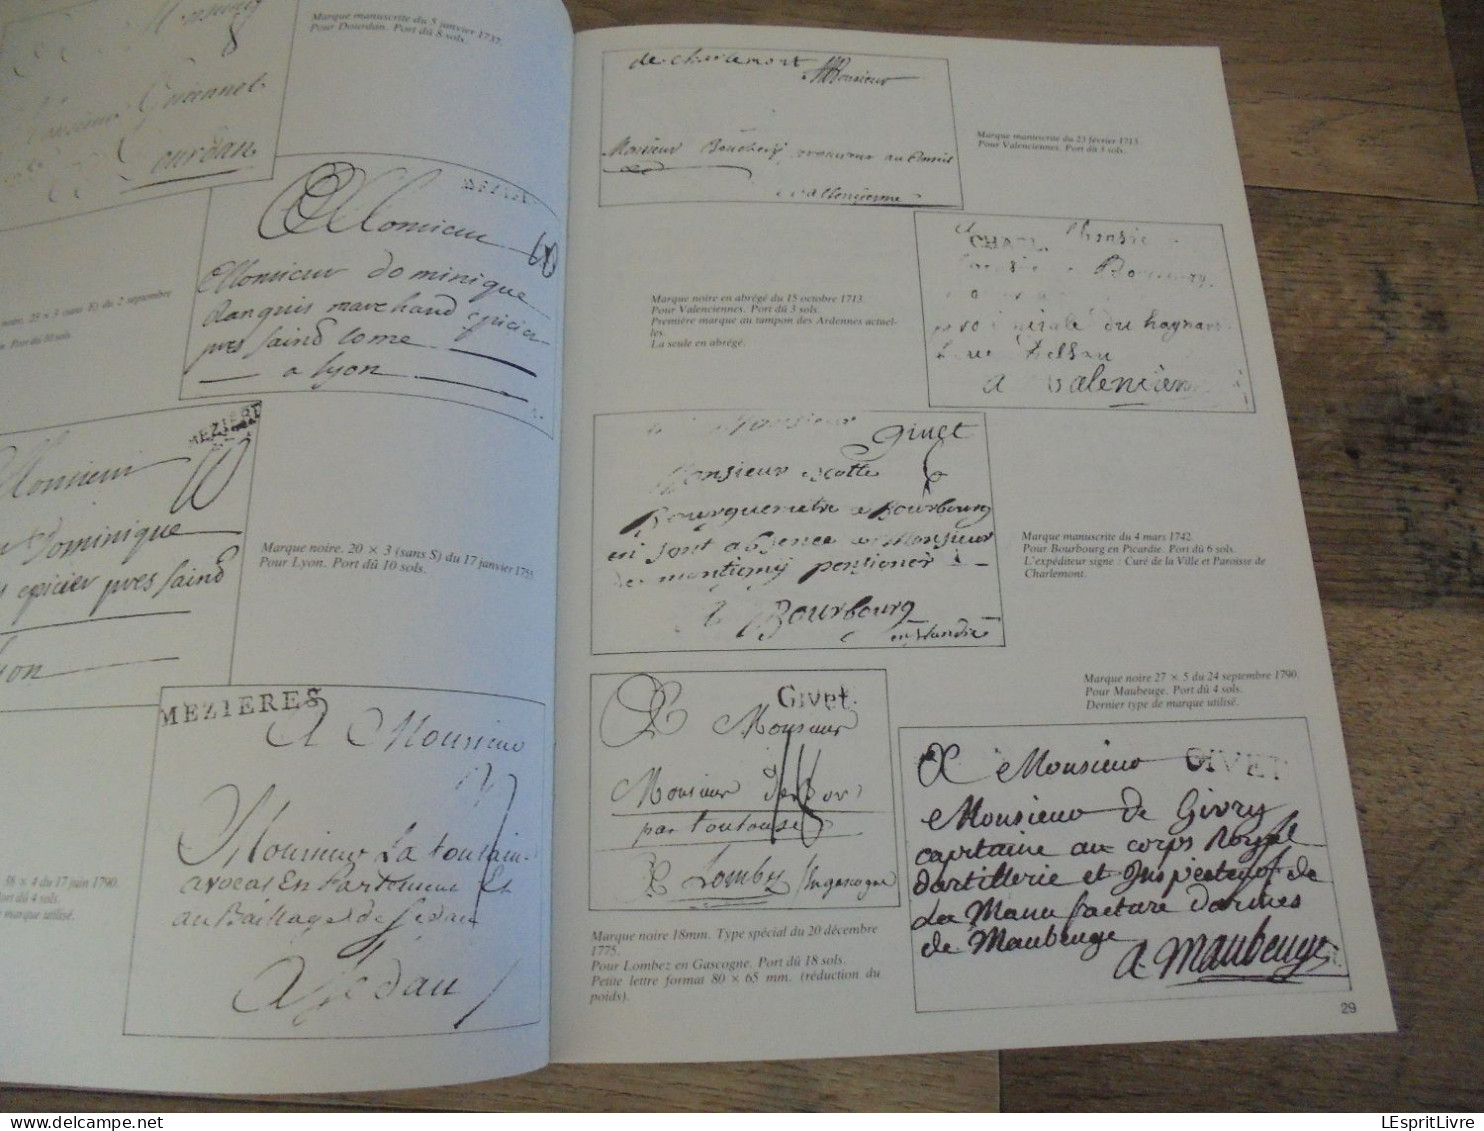 Marque manuscrite du 5 janvier 1737.
Pour Dourdan. Port dû 8 sols.
8
Dourdan
Monsieur
Monsieur dominique
danguis marchand epicier
pres Saind Come
a Lyon
noire. 25 × 3 (sans E) du 2 septembre
Port dû 10 sols.
MEZIERE
10
Monsieur
Dominique
epicier pres Saind
Marque noire. 20 × 3 (sans S) du 17 janvier 1755
Pour Lyon. Port dû 10 sols.
MEZIERES
A Monsieur
Monsieur La
avocat En Parlement Et
au Bailliage de Sedan
A Sedan
38 × 4 du 17 juin 1790.
Port dû 4 sols.
marque utilisé.
de charlemont
Monsieur
Monsieur
valencienne
Marque manuscrite du 23 février 1713.
Pour Valenciennes. Port dû 3 sols.
CHARL
du haynau
a valencien
Marque noire en abrégé du 15 octobre 1713.
Pour Valenciennes. Port dû 3 sols.
Première marque au tampon des Ardennes actuel-
les.
La seule en abrégé.
Monsieur
Givet
Monsieur
6
Bourguemetre a Bourbourg
en son absence a Monsieur
de montigny pentioner
a Bourbourg
en flandre
Marque manuscrite du 4 mars 1742.
Pour Bourbourg en Picardie. Port dû 6 sols.
L'expéditeur signe : Curé de la Ville et Paroisse de
Charlemont.
Givet
A Monsieur
Monsieur
18
par toulouse
A Lombez
en gascogne
Marque noire 18mm. Type spécial du 20 décembre
1775.
Pour Lombez en Gascogne. Port dû 18 sols.
Petite lettre format 80 × 65 mm. (réduction du
poids).
Marque noire 27 × 5 du 24 septembre 1790.
Pour Maubeuge. Port dû 4 sols.
Dernier type de marque utilisé.
A Monsieur GIVET
Monsieur de Givry
capitaine au corps Royal
dartillerie et Inspecteur de
La Manufacture darmes
de Maubeuge
A Maubeuge
29
LEspritLivre